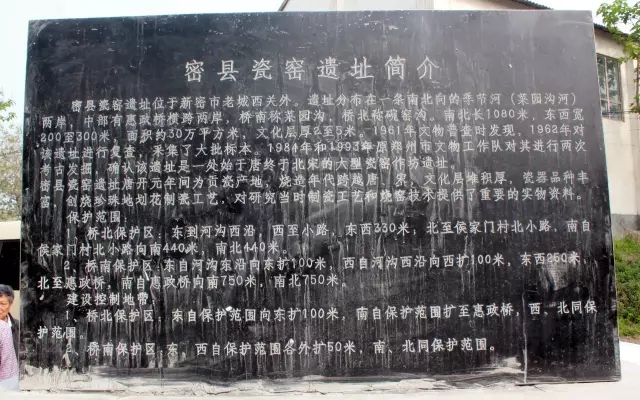 密县瓷窑遗址简介
密县瓷窑遗址位于新密市老城西关外。遗址分布在一条南北向的季节河（菜园沟河）
两岸，中部有惠政桥横跨两岸，桥南称菜园沟，桥北称砚窑沟。南北长1080米，东西宽
200至300米，面积约30万平方米，文化层厚2至5米。1961年文物普查时发现，1962年对
该遗址进行复查，采集了大批标本。1984年和1993年原郑州市文物工作队对其进行两次
考古发掘，确认该遗址是一处始于唐终于北宋的大型瓷窑作坊遗址。
密县瓷窑遗址唐开元年间为贡瓷产地，烧造年代跨越唐、宋，文化层堆积厚，瓷器品种丰
富，创烧珍珠地划花制瓷工艺，对研究当时制瓷工艺和烧窑技术提供了重要的实物资料。
保护范围：
1、桥北保护区：东到河沟西沿，西至小路，东西330米；北至侯家门村北小路，南自
侯家门村北小路向南440米，南北440米。
2、桥南保护区：东自河沟东沿向东扩100米，西自河沟西沿向西扩100米，东西250米，
北至惠政桥，南自惠政桥向南750米，南北750米。
建设控制地带：
1、桥北保护区：东自保护范围向东扩100米，南自保护范围扩至惠政桥，西、北同保
护范围。
2、桥南保护区：东、西自保护范围各外扩50米，南、北同保护范围。